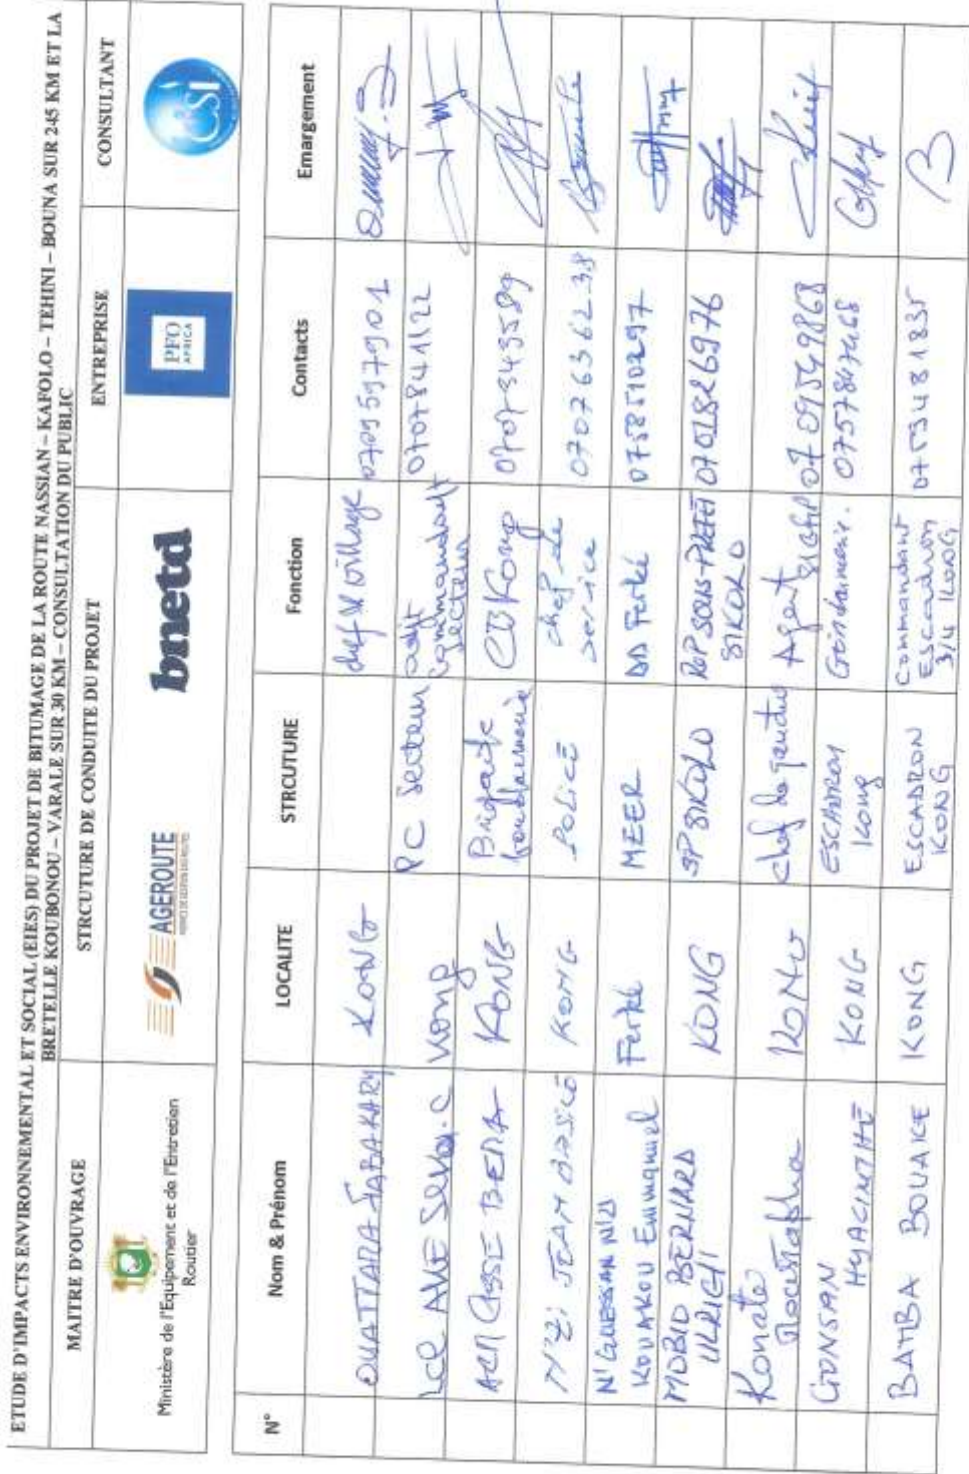 ETUDE D'IMPACTS ENVIRONNEMENTAL ET SOCIAL (EIES) DU PROJET DE BITUMAGE DE LA ROUTE NASSIAN – KAFOLO – TEHINI – BOUNA SUR 245 KM ET LA
BRETELLE KOUBONOU – VARALE SUR 30 KM – CONSULTATION DU PUBLIC
MAITRE D'OUVRAGE STRCUTURE DE CONDUITE DU PROJET ENTREPRISE CONSULTANT
Ministère de l'Equipement et de l'Entretien
Routier
AGEROUTE
bnetd
PFO
AFRICA
N° Nom & Prénom LOCALITE STRCUTURE Fonction Contacts Emargement
OUATTARA BABAKARY KONG chef de village
KONG PC Secteur adjt Commandant Secteur 0707841122
KONG Brigade CB Kong 0707343589
N'ZI JEAN KONG POLICE chef de service 0707636238
N'GUESSAN N'ZI
KOUAKOU Emmanuel Ferké MEER DD Ferké 0758510297
MOBIO BERNARD
ULRICH KONG SP SIKOLO SOUS-PREFET SIKOLO 0701826976
Konaté KONG Agent 0709549868
GONSAN
HYACINTHE KONG ESCADRON Kong Gendarmerie. 0757847468
BAMBA BOUAKE KONG ESCADRON KONG Commandant Escadron 3/4 KONG 0759481835